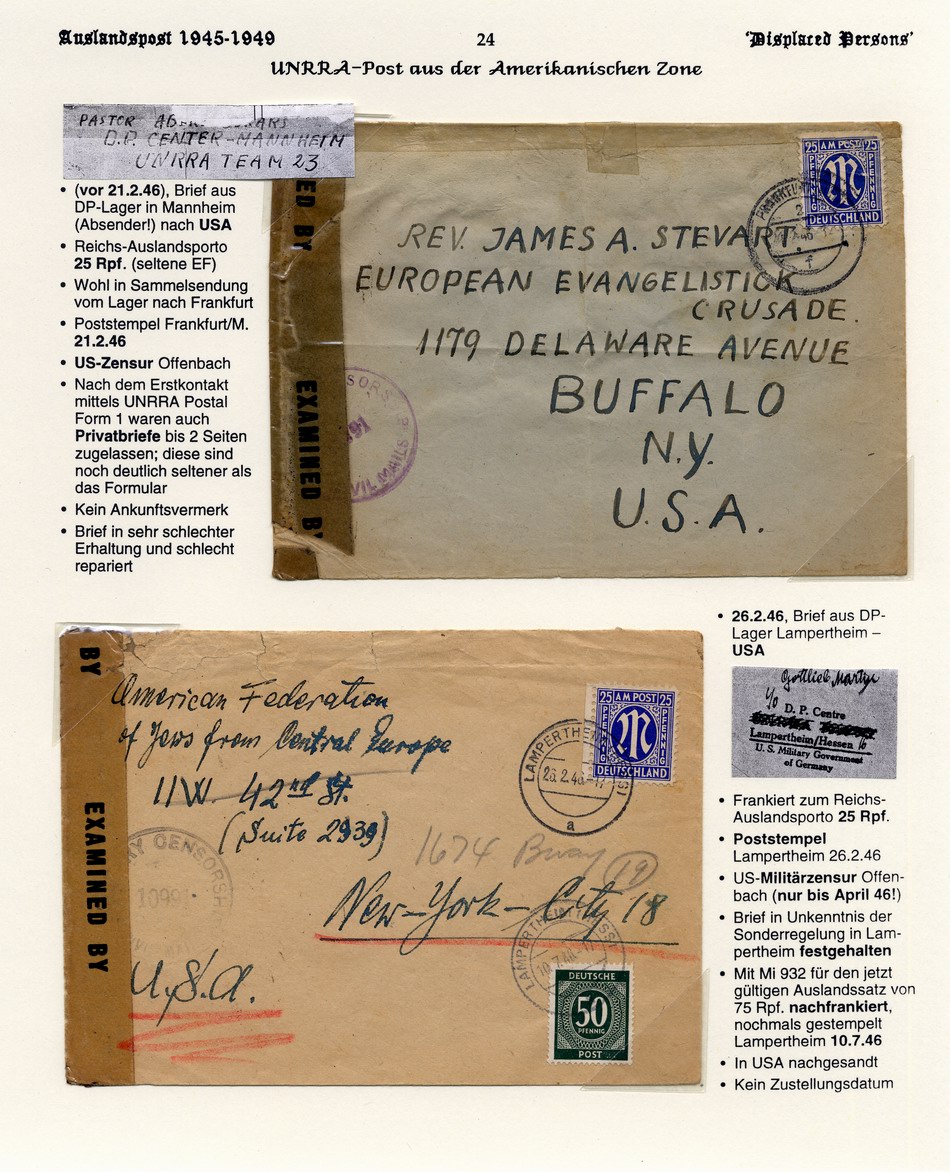 Auslandspost 1945-1949
24
'Displaced Persons'
UNRRA-Post aus der Amerikanischen Zone
PASTOR
D.P. CENTER-MANNHEIM
UNRRA TEAM 23
• (vor 21.2.46), Brief aus
DP-Lager in Mannheim
(Absender!) nach USA
• Reichs-Auslandsporto
25 Rpf. (seltene EF)
• Wohl in Sammelsendung
vom Lager nach Frankfurt
• Poststempel Frankfurt/M.
21.2.46
• US-Zensur Offenbach
• Nach dem Erstkontakt
mittels UNRRA Postal
Form 1 waren auch
Privatbriefe bis 2 Seiten
zugelassen; diese sind
noch deutlich seltener als
das Formular
• Kein Ankunftsvermerk
• Brief in sehr schlechter
Erhaltung und schlecht
repariert
ED BY
EXAMINED BY
25 AM POST 25
PFENNIG PFENNIG
M
DEUTSCHLAND
REV. JAMES A. STEVART
EUROPEAN EVANGELISTICK
CRUSADE.
1179 DELAWARE AVENUE
BUFFALO
N.Y.
U.S.A.
SORS
191
VIL MAILS
BY
EXAMINED BY
American Federation
of Jews from Central Europe
11 W. 42nd St.
(Suite 2939)
1674 Bway
19
New-York-City 18
U.S.A.
Y CENSORSH
1099
LAMPERTHEIM
26.2.46-17
a
25 AM POST 25
PFENNIG PFENNIG
M
DEUTSCHLAND
LAMPERTHEIM
10.7.46
DEUTSCHE
50
PFENNIG
POST
• 26.2.46, Brief aus DP-
Lager Lampertheim –
USA
Gottlieb Martyn
D. P. Centre
Lampertheim/Hessen 16
U. S. Military Government
of Germany
• Frankiert zum Reichs-
Auslandsporto 25 Rpf.
• Poststempel
Lampertheim 26.2.46
• US-Militärzensur Offen-
bach (nur bis April 46!)
• Brief in Unkenntnis der
Sonderregelung in Lam-
pertheim festgehalten
• Mit Mi 932 für den jetzt
gültigen Auslandssatz von
75 Rpf. nachfrankiert,
nochmals gestempelt
Lampertheim 10.7.46
• In USA nachgesandt
• Kein Zustellungsdatum